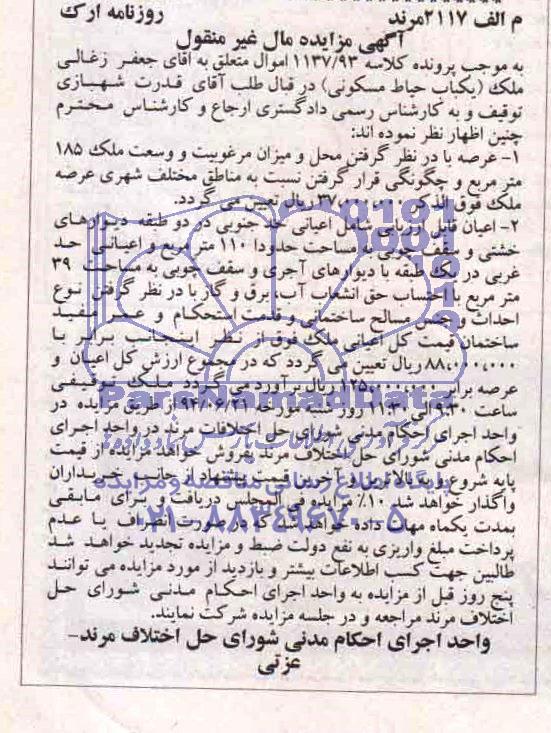 م الف ۲۱۱۷مرند روزنامه ارک
آگهی مزایده مال غیر منقول
به موجب پرونده کلاسه ۱۱۳۷/۹۳ اموال متعلق به آقای جعفر زغالی
ملک (یکباب حیاط مسکونی) در قبال طلب آقای قدرت شهبازی
توقیف و به کارشناس رسمی دادگستری ارجاع و کارشناس محترم
چنین اظهار نظر نموده اند:
۱- عرصه با در نظر گرفتن محل و میزان مرغوبیت و وسعت ملک ۱۸۵
متر مربع و چگونگی قرار گرفتن نسبت به مناطق مختلف شهری عرصه
ملک فوق الذکر ۳۷,۰۰۰,۰۰۰ ریال تعیین می گردد.
۲- اعیان قابل ارزیابی شامل اعیانی حد جنوبی در دو طبقه دیوارهای
خشتی و سقف چوبی به مساحت حدودا ۱۱۰ متر مربع و اعیانی حد
غربی در یک طبقه با دیوارهای آجری و سقف چوبی به مساحت ۳۹
متر مربع با احتساب حق انشعاب آب، برق و گاز با در نظر گرفتن نوع
احداث و جنس مسالح ساختمانی و قدمت استحکام و عمر مفید
ساختمان قیمت کل اعیانی ملک فوق از نظر اینجانب برابر با
۸۸,۰۰۰,۰۰۰ ریال تعیین می گردد که در مجموع ارزش کل اعیان و
عرصه برابر ۱۲۵,۰۰۰,۰۰۰ ریال برآورد می گردد ملک توقیفی
ساعت ۹:۳۰ الی ۱۱:۳۰ روز شنبه مورخه ۹۴/۰۶/۲۱ از طریق مزایده در
واحد اجرای احکام مدنی شورای حل اختلافات مرند در واحد اجرای
احکام مدنی شورای حل اختلاف مرند بفروش خواهد مزایده از قیمت
پایه شروع و به بالاترین و آخرین قیمت پیشنهاد از جانب خریداران
واگذار خواهد شد ۱۰٪ مزایده فی المجلس دریافت و برای مابقی
بمدت یکماه مهلت داده خواهد شد که در صورت انصراف یا عدم
پرداخت مبلغ واریزی به نفع دولت ضبط و مزایده تجدید خواهد شد
طالبین جهت کسب اطلاعات بیشتر و بازدید از مورد مزایده می توانند
پنج روز قبل از مزایده به واحد اجرای احکام مدنی شورای حل
اختلاف مرند مراجعه و در جلسه مزایده شرکت نمایند.
واحد اجرای احکام مدنی شورای حل اختلاف مرند-
عزتی
ParsNamadData
پایگاه اطلاع رسانی مناقصه و مزایده
۰۲۱-۸۸۳۴۹۶۷۰-۵